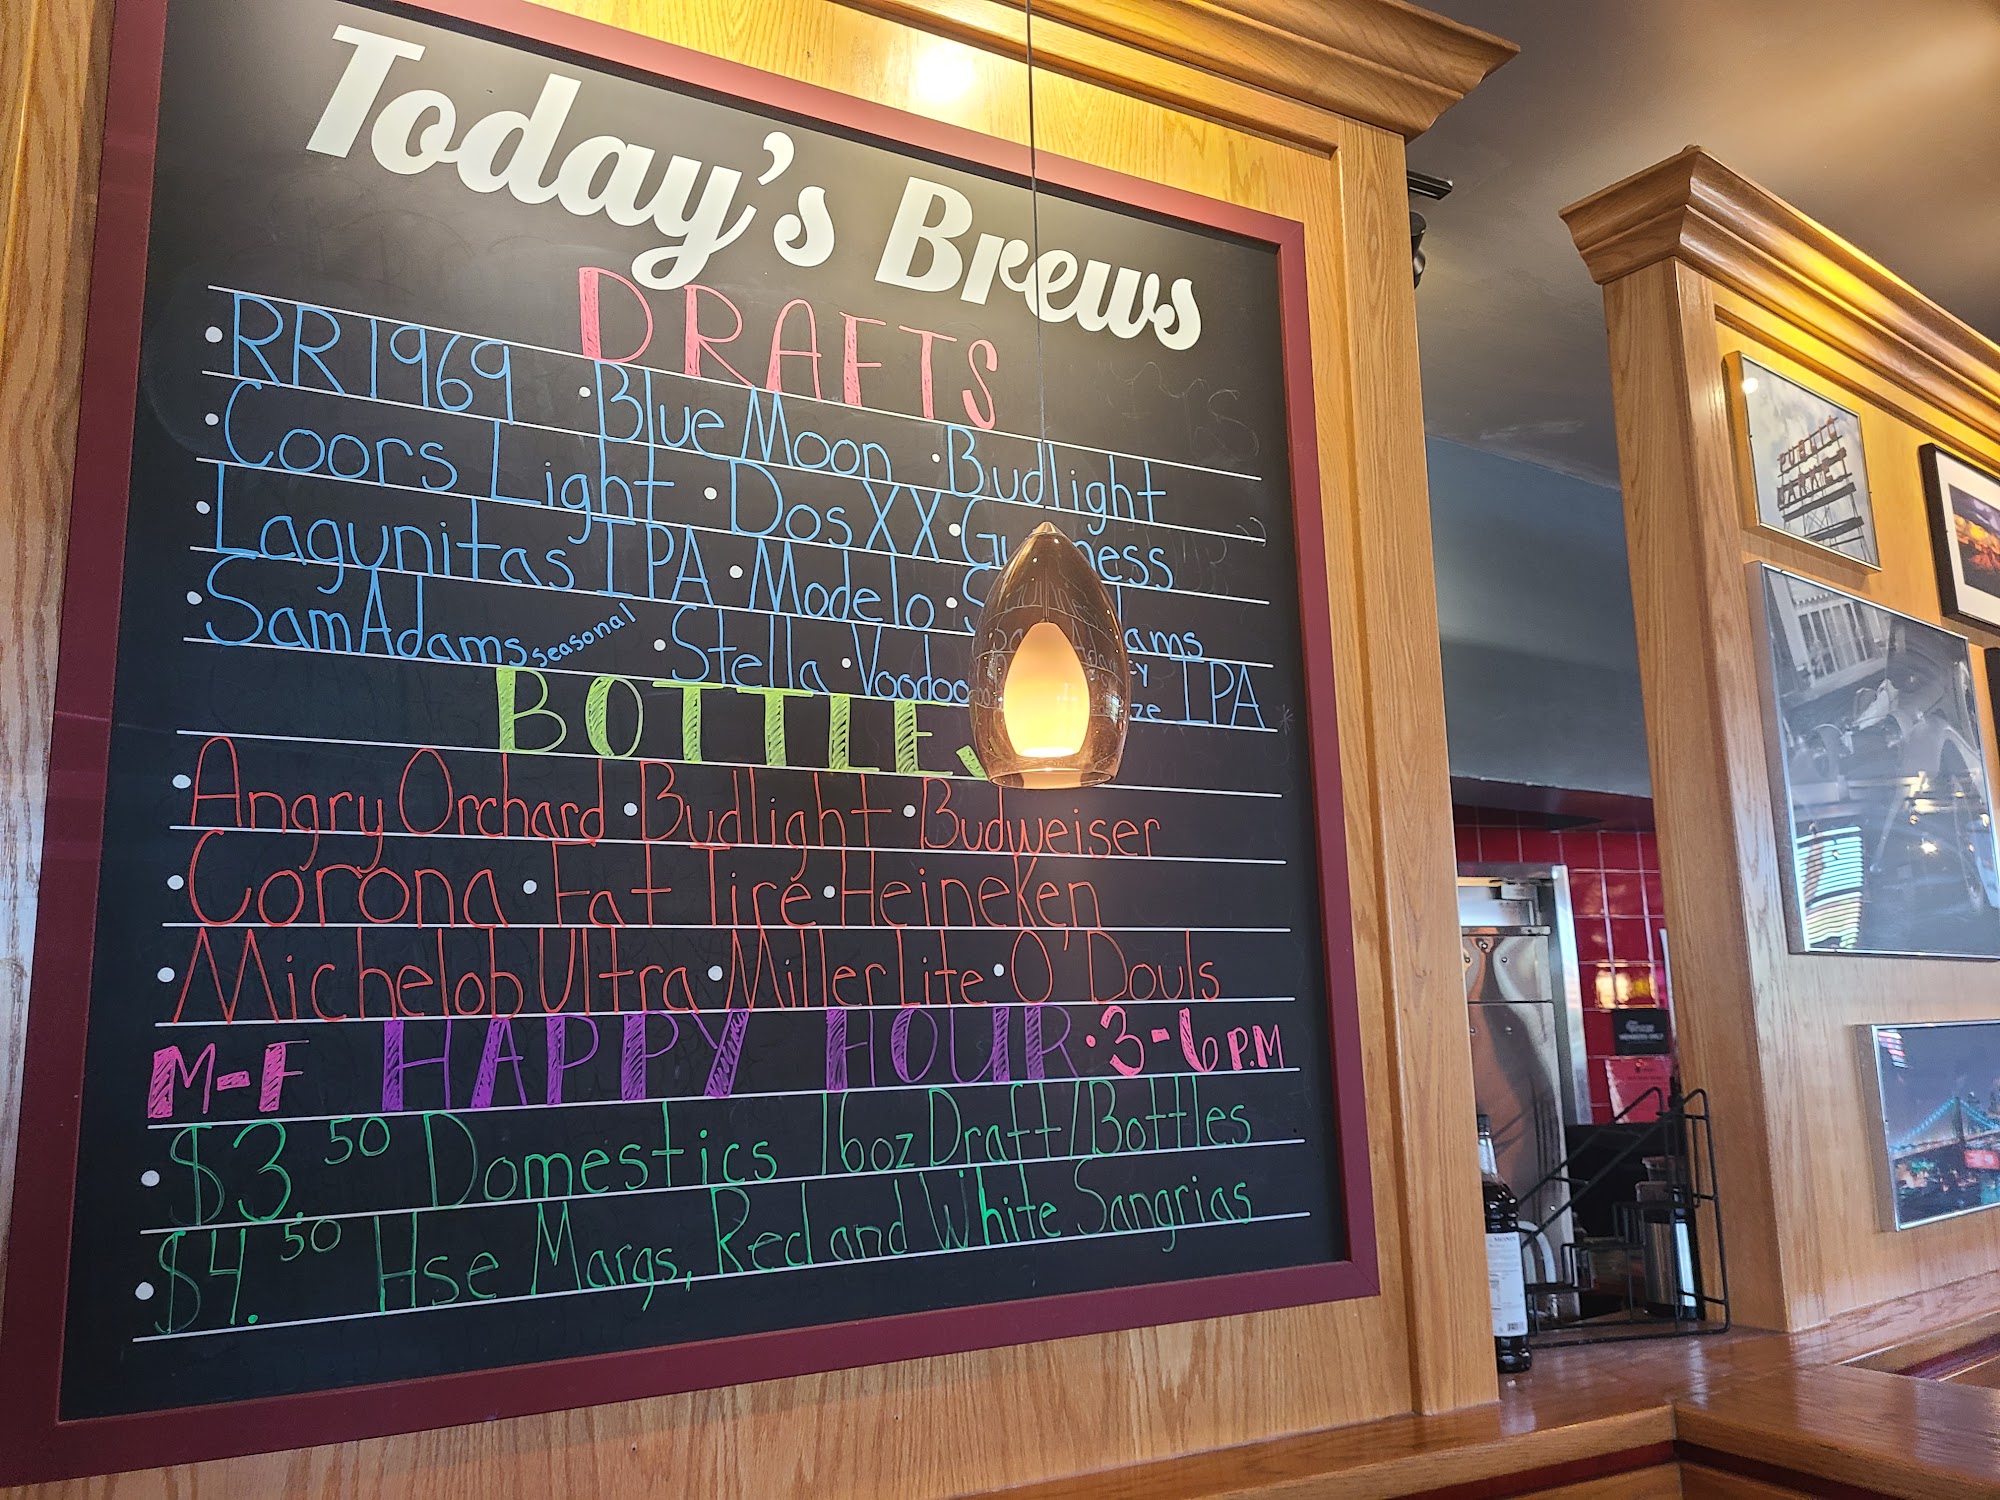 Today's Brews
DRAFTS
• RR1969 • Blue Moon • Budlight
• Coors Light • Dos XX •
• Lagunitas IPA • Modelo •
• SamAdams seasonal • Stella • Voodoo IPA
BOTTLES
• Angry Orchard • Budlight • Budweiser
• Corona • Fat Tire • Heineken
• Michelob Ultra • Miller Lite • O'Douls
M-F HAPPY HOUR • 3-6 P.M
• $3.50 Domestics 16oz Draft/Bottles
• $4.50 Hse Margs, Red and White Sangrias
PUBLIC
MARKET